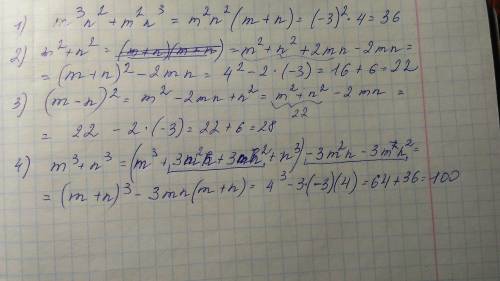 1) m³n² + m²n³ = m²n²(m+n) = (-3)²·4 = 36
2) m²+n² = = m²+n²+2mn-2mn =
= (m+n)²-2mn = 4²-2·(-3) = 16+6 = 22
3) (m-n)² = m²-2mn+n² = m²+n²-2mn =
22
= 22 - 2·(-3) = 22+6 = 28
4) m³+n³ = (m³+3m²n+3mn²+n³)-3m²n-3mn² =
= (m+n)³-3mn(m+n) = 4³-3·(-3)(4) = 64+36 = 100